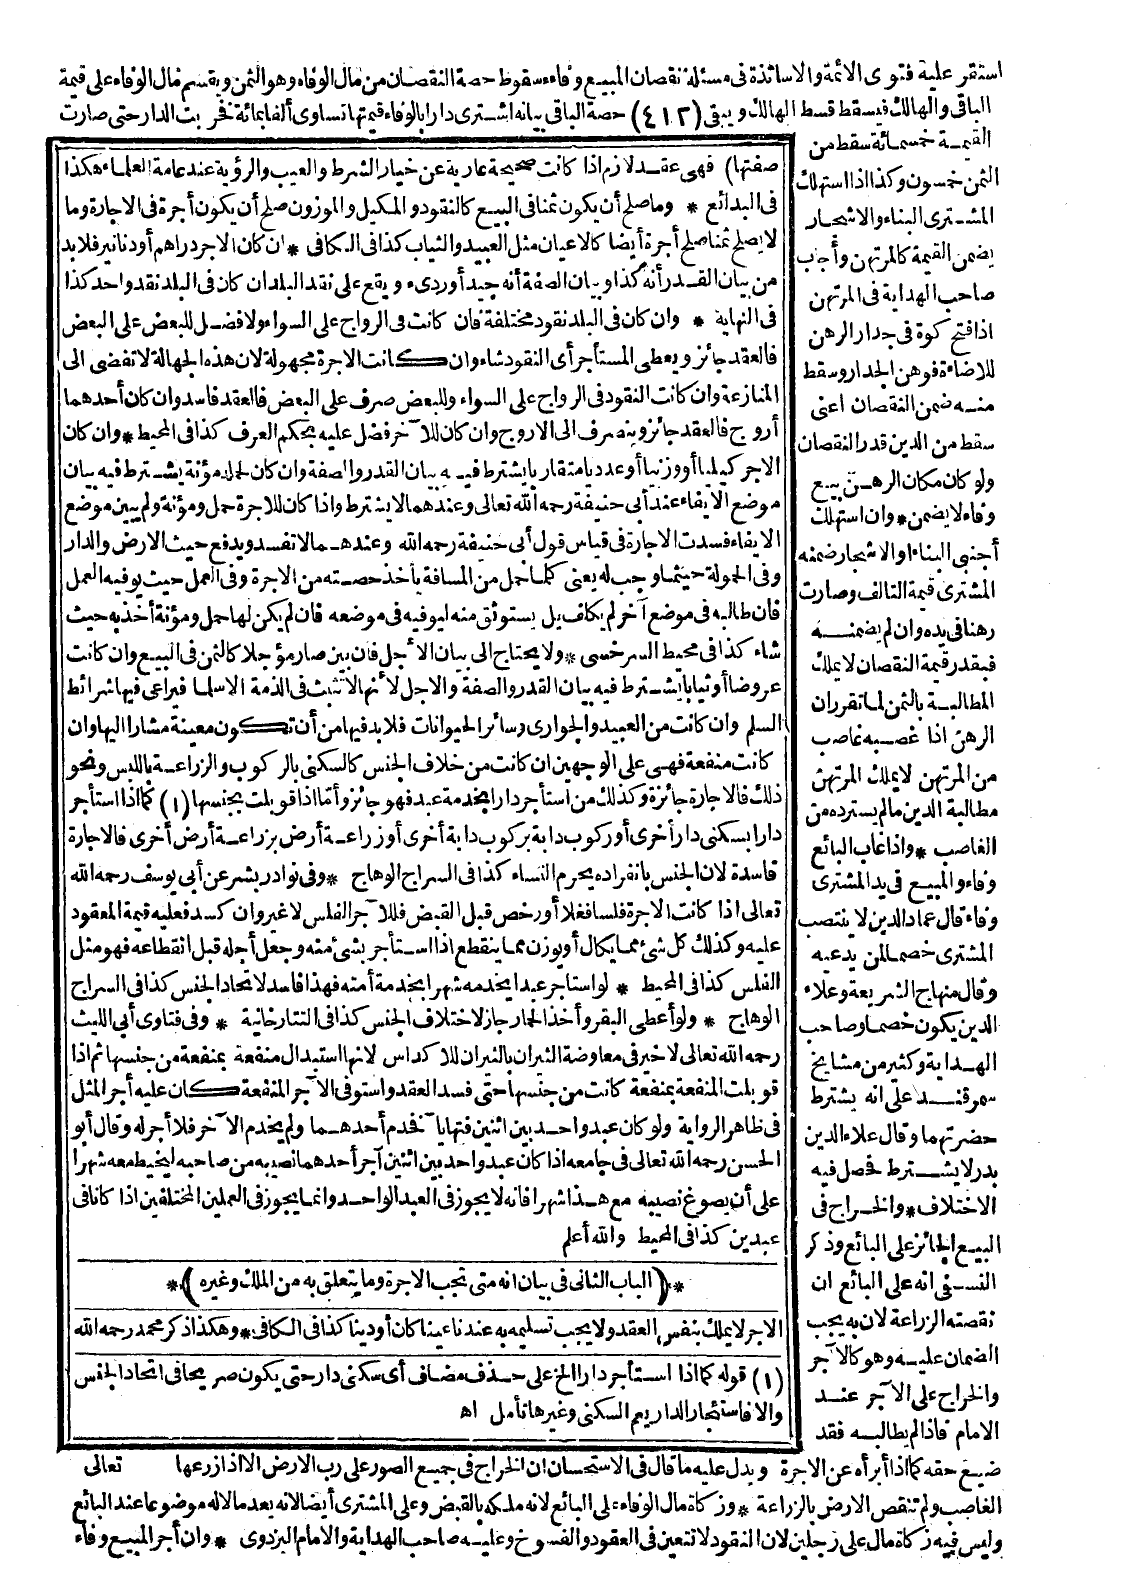 استقر عليه فتوى الأئمة والاساتذة فى مسئلة نقصان المبيع وفاء سقوط حصة النقصان من مال الوفاء وهو الثمن ويقسم مال الوفاء على قيمة
الباقى والهالك فيسقط قسط الهالك ويبقى (٤١٢) حصة الباقى بيانه اشترى دارا بالوفاء قيمتها تساوى ألفا بمائة فخربت الدار حتى صارت
القيمة خمسمائة سقط من
الثمن خمسون وكذا اذا استهلك
المشترى البناء والاشجار
يضمن القيمة كالمرتهن وأجاب
صاحب الهداية فى المرتهن
اذا فتح كوة فى جدار الرهن
للاضاءة فوهن الجدار وسقط
منه ضمن النقصان اعنى
سقط من الدين قدر النقصان
ولو كان مكان الرهن بيع
وفاء لا يضمن * وان استهلك
أجنبى البناء او الاشجار ضمنه
المشترى قيمة التالف وصارت
رهنا فى يده وان لم يضمنه
فبقدر قيمة النقصان لا يملك
المطالبة بالثمن لما تقرر ان
الرهن اذا غصبه غاصب
من المرتهن لا يملك المرتهن
مطالبة الدين مالم يسترده من
الغاصب * واذا غاب البائع
وفاء والمبيع فى يد المشترى
وفاء قال عماد الدين لا ينتصب
المشترى خصما لمن يدعيه
وقال منهاج الشريعة وعلاء
الدين يكون خصما وصاحب
الهداية وكثير من مشايخ
سمرقند على انه يشترط
حضرتهما وقال علاء الدين
بدر لا يشترط فحصل فيه
الاختلاف * والخراج فى
البيع الجائز على البائع وذكر
النسفى انه على البائع ان
نقصته الزراعة لان به يجب
الضمان عليه وهو كالآجر
والخراج على الآجر عند
الامام فاذا لم يطالبه فقد
صفتها) فهى عقد لازم اذا كانت صحيحة عارية عن خيار الشرط والعيب والرؤية عند عامة العلماء هكذا
فى البدائع * وما صلح أن يكون ثمنا فى البيع كالنقود والمكيل والموزون صلح أن يكون أجرة فى الاجارة وما
لا يصلح ثمنا صلح أجرة أيضا كالاعيان مثل العبيد والثياب كذا فى الكافى * ان كان الاجر دراهم أو دنانير فلا بد
من بيان القدر أنه كذا وبيان الصفة أنه جيد أو ردىء ويقع على نقد البلد ان كان فى البلد نقد واحد كذا
فى النهاية * وان كان فى البلد نقود مختلفة فان كانت فى الرواج على السواء ولا فضل للبعض على البعض
فالعقد جائز ويعطى المستأجر أى النقود شاء وان كانت الاجرة مجهولة لان هذه الجهالة لا تفضى الى
المنازعة وان كانت النقود فى الرواج على السواء وللبعض صرف على البعض فالعقد فاسد وان كان أحدهما
أروج فالعقد جائز وينصرف الى الاروج وان كان للآخر فضل عليه بحكم العرف كذا فى المحيط * وان كان
الاجر كيليا أو وزنيا أو عدديا متقاربا يشترط فيه بيان القدر والصفة وان كان لحمله مؤنة يشترط فيه بيان
موضع الايفاء عند أبى حنيفة رحمه الله تعالى وعندهما لا يشترط واذا كان للاجرة حمل ومؤنة ولم يبين موضع
الايفاء فسدت الاجارة فى قياس قول أبى حنيفة رحمه الله وعندهما لا تفسد ويدفع حيث الارض والدار
وفى الحمولة حيثما وجب له يعنى كلما حمل من المسافة يأخذ حصته من الاجرة وفى العمل حيث يوفيه العمل
فان طالبه فى موضع آخر لم يكلف بل يستوثق منه ليوفيه فى موضعه فان لم يكن لها حمل ومؤنة أخذ به حيث
شاء كذا فى محيط السرخسى * ولا يحتاج الى بيان الأجل فان بين صار مؤجلا كالثمن فى البيع وان كانت
عروضا أو ثيابا يشترط فيه بيان القدر والصفة والاجل لأنها لا تثبت فى الذمة الا سلما فيراعى فيها شرائط
السلم وان كانت من العبيد والجوارى وسائر الحيوانات فلا بد فيها من أن تكون معينة مشارا اليها وان
كانت منفعة فهى على الوجهين ان كانت من خلاف الجنس كالسكنى بالركوب والزراعة باللبس ونحو
ذلك فالاجارة جائزة وكذلك من استأجر دارا بخدمة عبد فهو جائز وأما اذا قوبلت بجنسها (١) كما اذا استأجر
دارا بسكنى دار أخرى أو ركوب دابة بركوب دابة أخرى أو زراعة أرض بزراعة أرض أخرى فالاجارة
فاسدة لان الجنس بانفراده يحرم النساء كذا فى السراج الوهاج * وفى نوادر بشر عن أبى يوسف رحمه الله
تعالى اذا كانت الاجرة فلسا فغلا أو رخص قبل القبض فللآجر الفلس لا غير وان كسد فعليه قيمة المعقود
عليه وكذلك كل شئ مما يكال أو يوزن مما ينقطع اذا استأجر بشئ منه وجعل أجله قبل انقطاعه فهو مثل
الفلس كذا فى المحيط * لو استأجر عبدا يخدمه شهرا بخدمة أمته فهذا فاسد لاتحاد الجنس كذا فى السراج
الوهاج * ولو أعطى البقر وأخذ الحمار جاز لاختلاف الجنس كذا فى التتارخانية * وفى فتاوى أبى الليث
رحمه الله تعالى لا خير فى معاوضة الثيران بالثيران للاكداس لانها استبدال منفعة بمنفعة من جنسها ثم اذا
قوبلت المنفعة بمنفعة كانت من جنسها حتى فسد العقد واستوفى الآجر المنفعة كان عليه أجر المثل
فى ظاهر الرواية ولو كان عبد واحد بين اثنين فتهايآ فخدم أحدهما ولم يخدم الآخر فلا أجر له وقال أبو
الحسن رحمه الله تعالى فى جامعه اذا كان عبد واحد بين اثنين آجر أحدهما نصيبه من صاحبه ليخيط معه شهرا
على أن يصوغ نصيبه مع هذا شهرا فانه لا يجوز فى العبد الواحد وانما يجوز فى العملين المختلفين اذا كانا فى
عبدين كذا فى المحيط والله أعلم
*(الباب الثانى فى بيان انه متى تجب الاجرة وما يتعلق به من الملك وغيره)*
الاجر لا يملك بنفس العقد ولا يجب تسليمه به عندنا عينا كان أو دينا كذا فى الكافى * وهكذا ذكر محمد رحمه الله
(١) قوله كما اذا استأجر دارا الخ على حذف مضاف أى سكنى دار حتى يكون صريحا فى اتحاد الجنس
والا فاستئجار الدار يعم السكنى وغيرها تأمل اه
ضيع حقه كما اذا أبرأه عن الاجرة ويدل عليه ما قال فى الاستحسان ان الخراج فى جميع الصور على رب الارض الا اذا زرعها تعالى
الغاصب ولم تنقص الارض بالزراعة * وزكاة مال الوفاء على البائع لانه ملكه بالقبض وعلى المشترى أيضا لانه يعد ماله موضوعا عند البائع
وليس فيه زكاة مال على رجلين لان النقود لا تتعين فى العقود والفسوخ وعليه صاحب الهداية والامام البزدوى * وان أجر المبيع وفاء